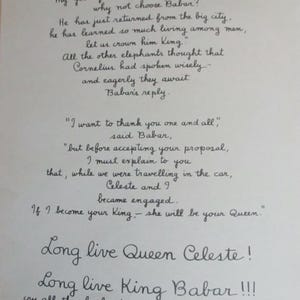 why not choose Babar?
He has just returned from the big city,
he has learned so much living among men,
let us crown him King."
All the other elephants thought that
Cornelius had spoken wisely –
and eagerly they await
Babar's reply.
"I want to thank you one and all,"
said Babar,
"but before accepting your proposal,
I must explain to you
that, while we were travelling in the car,
Celeste and I
became engaged.
If I become your King – she will be your Queen."
Long live Queen Celeste!
Long live King Babar!!!